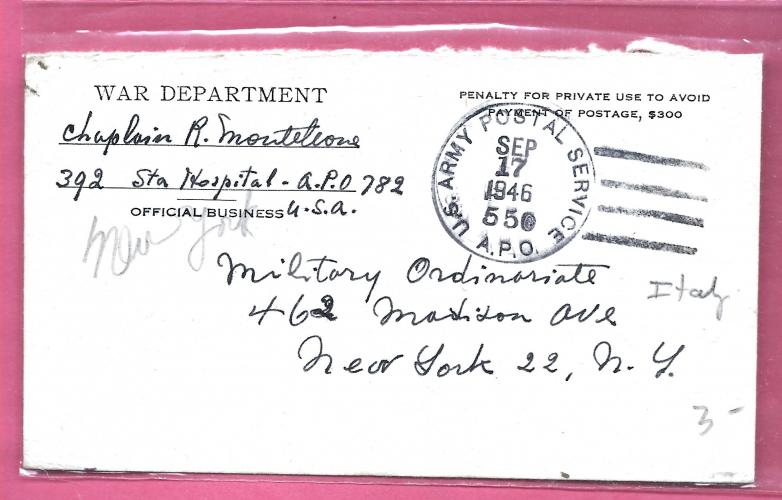 WAR DEPARTMENT
Chaplain R. Monteleone
392 Sta Hospital - A.P.O 782
OFFICIAL BUSINESS U.S.A.
New York
PENALTY FOR PRIVATE USE TO AVOID
PAYMENT OF POSTAGE, $300
U.S. ARMY POSTAL SERVICE
SEP
17
1946
550
A.P.O.
Military Ordinariate
462 Madison Ave
New York 22, N.Y.
Italy
3-